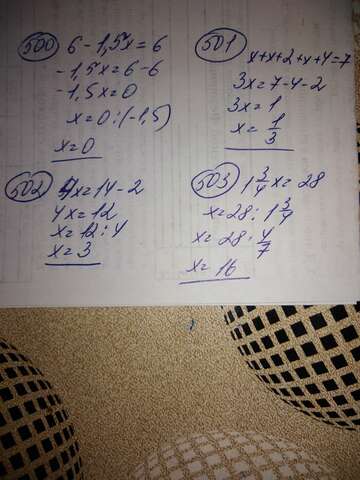 500 6 - 1,5x = 6
-1,5x = 6-6
-1,5x = 0
x = 0 : (-1,5)
x = 0
501 x+x+2+x+4=7
3x = 7-4-2
3x = 1
x = 1/3
502 4x = 14 - 2
4x = 12
x = 12 : 4
x = 3
503 1 3/4 x = 28
x = 28 : 1 3/4
x = 28 · 4/7
x = 16